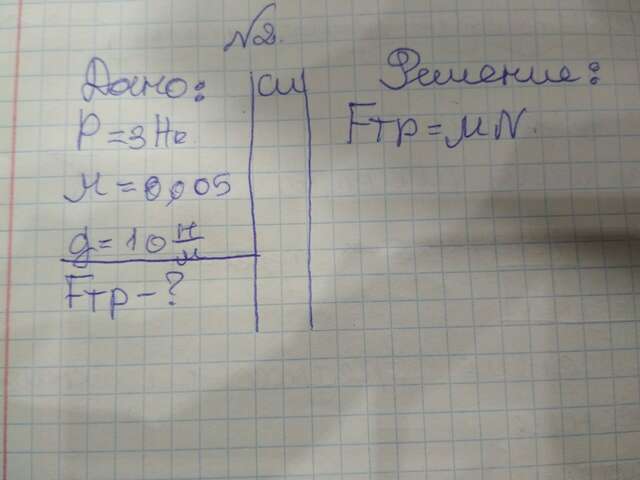 №2.
Дано:
P = 3 Не
μ = 0,005
g = 10 Н/м
Fтр - ?
СИ
Решение:
Fтр = μN.